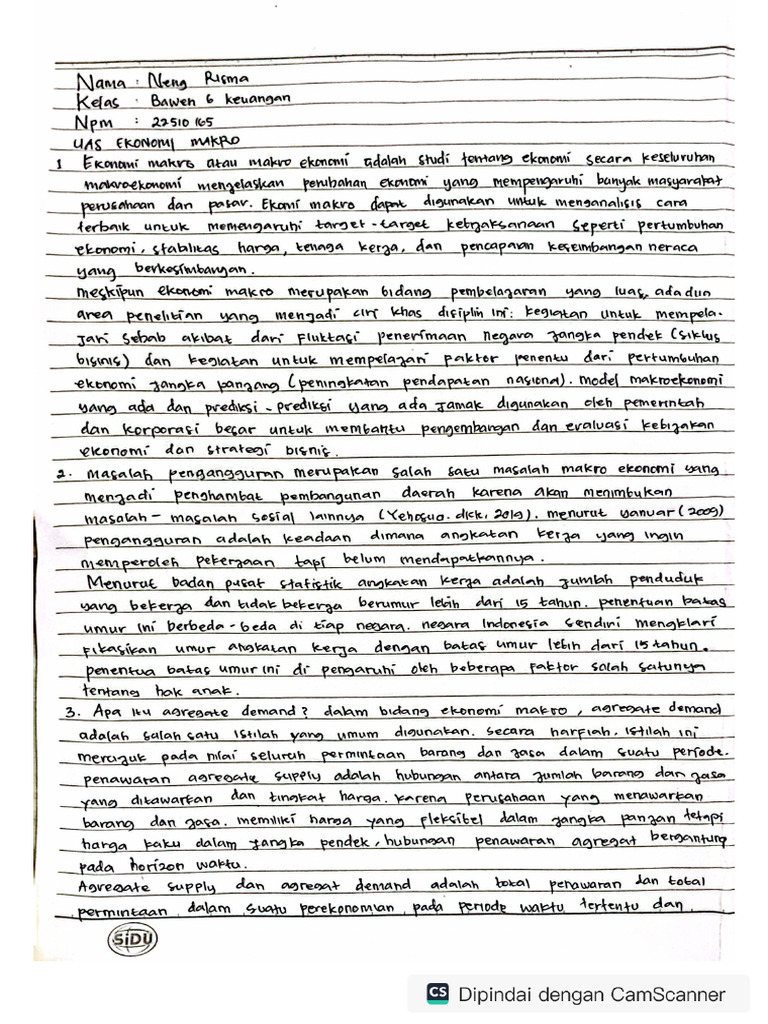 Nama : Neng Risma
Kelas : Bawen 6 keuangan
Npm : 22510165
UAS EKONOMI MAKRO
1 Ekonomi makro atau makro ekonomi adalah studi tentang ekonomi secara keseluruhan
makroekonomi mengelaskan perubahan ekonomi yang mempengaruhi banyak masyarakat
perusahaan dan pasar. Ekomi makro dapat digunakan untuk menganalisis cara
terbaik untuk memengaruhi target-target kebijaksanaan seperti pertumbuhan
ekonomi, stabilitas harga, tenaga kerja, dan pencapaian keseimbangan neraca
yang berkesimbangan.
meskipun ekonomi makro merupakan bidang pembelajaran yang luas, ada dua
area penelitian yang menjadi ciri khas disiplin ini: kegiatan untuk mempela-
jari sebab akibat dari fluktasi penerimaan negara jangka pendek (siklus
bisinis) dan kegiatan untuk mempelajari faktor penentu dari pertumbuhan
ekonomi jangka panjang (peningkatan pendapatan nasional). model makroekonomi
yang ada dan prediksi-prediksi yang ada jamak digunakan oleh pemerintah
dan korporasi besar untuk membantu pengembangan dan evaluasi kebijakan
ekonomi dan strategi bisnis.
2. masalah pengangguran merupakan salah satu masalah makro ekonomi yang
menjadi penghambat pembangunan daerah karena akan menimbukan
masalah-masalah sosial lainnya (Yehosua. dkk, 2019). menurut yanuar (2009)
pengangguran adalah keadaan dimana angkatan kerja yang ingin
memperoleh pekerjaan tapi belum mendapatkannya.
Menurut badan pusat statistik angkatan kerja adalah jumlah penduduk
yang bekerja dan tidak bekerja berumur lebih dari 15 tahun. penentuan batas
umur ini berbeda-beda di tiap negara. negara Indonesia sendiri mengklari
fikasikan umur angkatan kerja dengan batas umur lebih dari 15 tahun.
penentua batas umur ini di pengaruhi oleh beberapa faktor salah satunya
tentang hak anak.
3. Apa itu agregate demand? dalam bidang ekonomi makro, agregate demand
adalah salah satu istilah yang umum digunakan. secara harfiah. istilah ini
merujuk pada nilai seluruh permintaan barang dan jasa dalam suatu periode.
penawaran agregate supply adalah hubungan antara jumlah barang dan jasa
yang ditawarkan dan tingkat harga. karena perusahaan yang menawarkan
barang dan jasa. memiliki harga yang fleksibel dalam jangka panjan tetapi
harga kaku dalam jangka pendek, hubungan penawaran agregat bergantung
pada horizon waktu.
Agregate supply dan agregat demand adalah total penawaran dan total
permintaan dalam suatu perekonomian pada periode waktu tertentu dan
SiDU
CS Dipindai dengan CamScanner